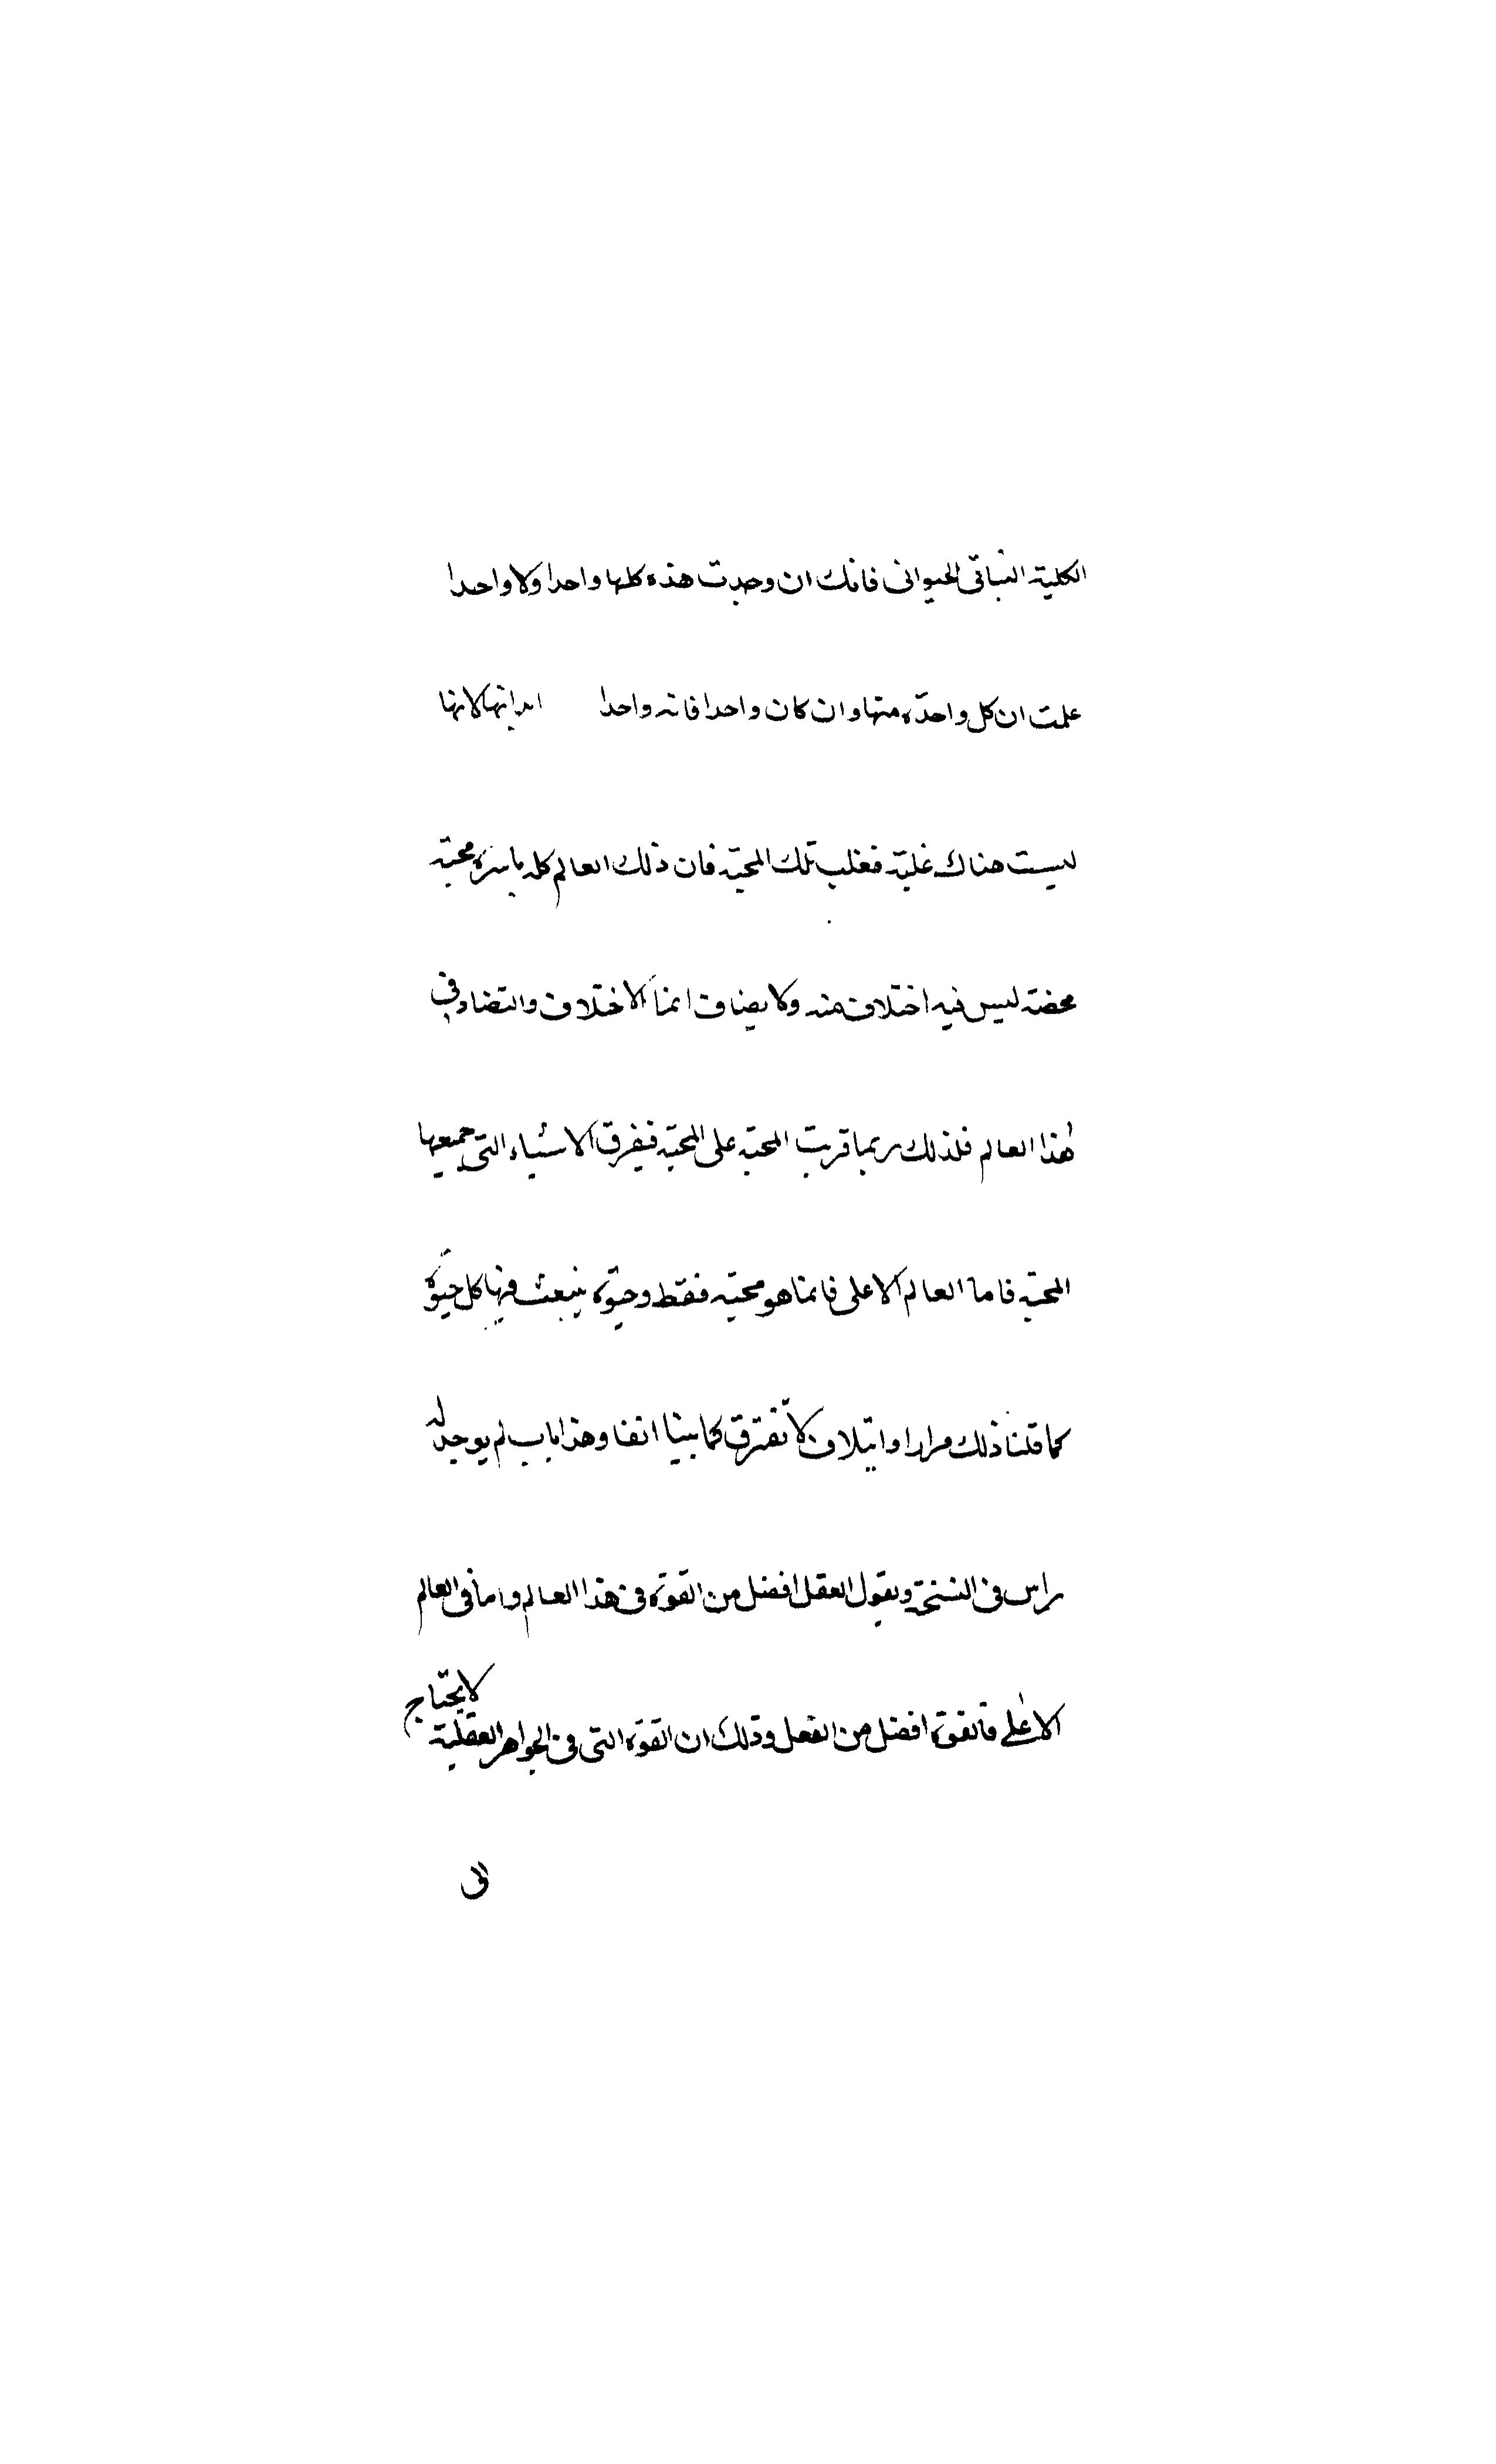 الكلية النباتى الحيوانى فانك ان وجدت هذه كلها واحدا ولا واحدا
علمت ان كل واحدة منها وان كان واحدا فانه واحدا لانها
ليست هناك غلبة فغلب تلك المحبة فان ذلك العالم كله باسره محبة
محضة ليس فيه اختلاف منه ولا يضاف انما الاختلاف والتضاد فى
هذا العالم فلذلك ربما قربت المحبة على المحبة فيفرق الاشياء التى جميعها
المحبة فاما العالم الاعلى فانما هو محبة فقط وحيوة ينبعث فيها كل حيوة
كما قلنا ذلك مرارا وايتلاف لا تفترق كما بينا انفا وهذا باب لم يوجد له
راس فى النسخة ويقول العقل افضل من القوة فى هذا العالم واما فى العالم
الاعلى فالقوة افضل من الفعل وذلك ان القوة التى فى الجواهر العقلية لا يحتاج
الى